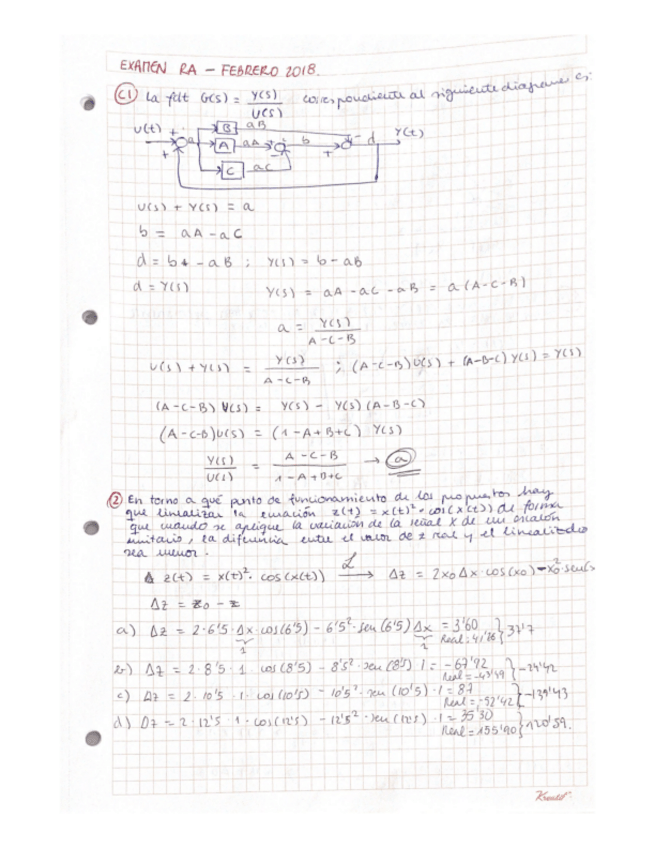 EXAMEN RA - FEBRERO 2018.
C1 La fdt G(s) = Y(s)/U(s) correspondiente al siguiente diagrama es:
B aB
U(t) + a A aA b + d Y(t)
+ C aC
U(s) + Y(s) = a
b = aA - aC
d = b - aB ; Y(s) = b - aB
d = Y(s) Y(s) = aA - aC - aB = a(A-C-B)
a = Y(s)/(A-C-B)
U(s) + Y(s) = Y(s)/(A-C-B) ; (A-C-B)U(s) + (A-B-C)Y(s) = Y(s)
(A-C-B) U(s) = Y(s) - Y(s)(A-B-C)
(A-C-B)U(s) = (1-A+B+C) Y(s)
Y(s)/U(s) = (A-C-B)/(1-A+B+C) → a
2 En torno a qué punto de funcionamiento de los propuestos hay
que linealizar la ecuación z(t) = x(t)² · cos(x(t)) de forma
que cuando se aplique la variación de la señal X de un escalón
unitario, la diferencia entre el valor de z real y el linealizado
sea menor.
z(t) = x(t)² · cos(x(t)) L→ Δz = 2x0Δx · cos(x0) - x0² · sen(x
Δz = z0 - z
a) Δz = 2·6'5·Δx·cos(6'5) - 6'5²·sen(6'5)Δx = 3'60
1 1 Real = 41'26 } 37'7
b) Δz = 2·8'5·1·cos(8'5) - 8'5²·sen(8'5)·1 = -67'92
Real = -43'49 } -24'42
c) Δz = 2·10'5·1·cos(10'5) - 10'5²·sen(10'5)·1 = 87
Real = -52'42 } -139'43
d) Δz = 2·12'5·1·cos(12'5) - 12'5²·sen(12'5)·1 = 35'30
Real = 155'90 } 120'59.